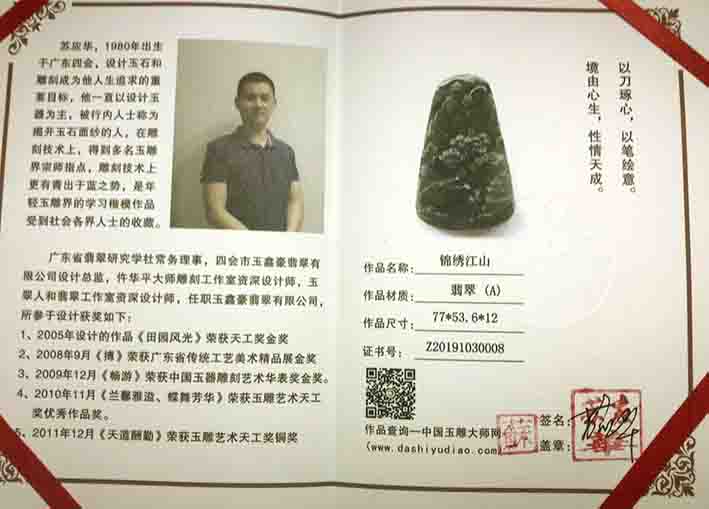 苏应华，1980年出生
于广东四会，设计玉石和
雕刻成为他人生追求的重
要目标，他一直以设计玉
器为主，被行内人士称为
揭开玉石面纱的人，在雕
刻技术上，得到多名玉雕
界宗师指点，雕刻技术上
更有青出于蓝之势，是年
轻玉雕界的学习楷模作品
受到社会各界人士的收藏。
广东省翡翠研究学社常务理事，四会市玉鑫豪翡翠有
限公司设计总监，仵华平大师雕刻工作室资深设计师，玉
翠人和翡翠工作室资深设计师，任职玉鑫豪翡翠有限公司，
所参于设计获奖如下：
1、2005年设计的作品《田园风光》荣获天工奖金奖
2、2008年9月《博》荣获广东省传统工艺美术精品展金奖
3、2009年12月《畅游》荣获中国玉器雕刻艺术华表奖金奖。
4、2010年11月《兰馨雅溢、蝶舞芳华》荣获玉雕艺术天工
奖优秀作品奖。
5、2011年12月《天道酬勤》荣获玉雕艺术天工奖铜奖
以刀琢心，以笔绘意。
境由心生，性情天成。
作品名称：锦绣江山
作品材质：翡翠（A）
作品尺寸：77*53.6*12
证书号：Z20191030008
作品查询—中国玉雕大师网
(www.dashiyudiao.com)
签名：
盖章：